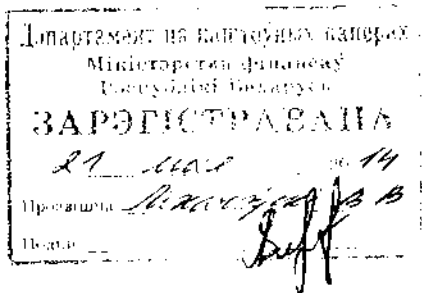 Дэпартамент па каштоўных паперах
Міністэрства фінансаў
Рэспублікі Беларусь
ЗАРЭГІСТРАВАНА
21 мая 14
Прозвішча В В
Подпіс